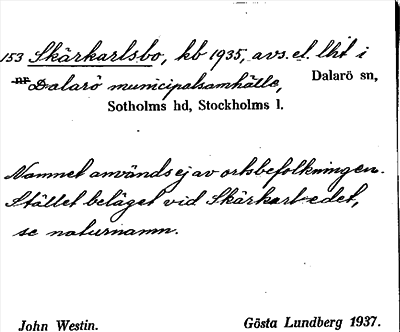 153 Skärkarlsbo, kb 1935, avs. el. lht i
Dalarö municipalsamhälle, Dalarö sn,
Sotholms hd, Stockholms l.
Namnet användsejav ortsbefolkningen.
Stället beläget vid Skärkarlsedet,
se naturnamn.
John Westin. Gösta Lundberg 1937.